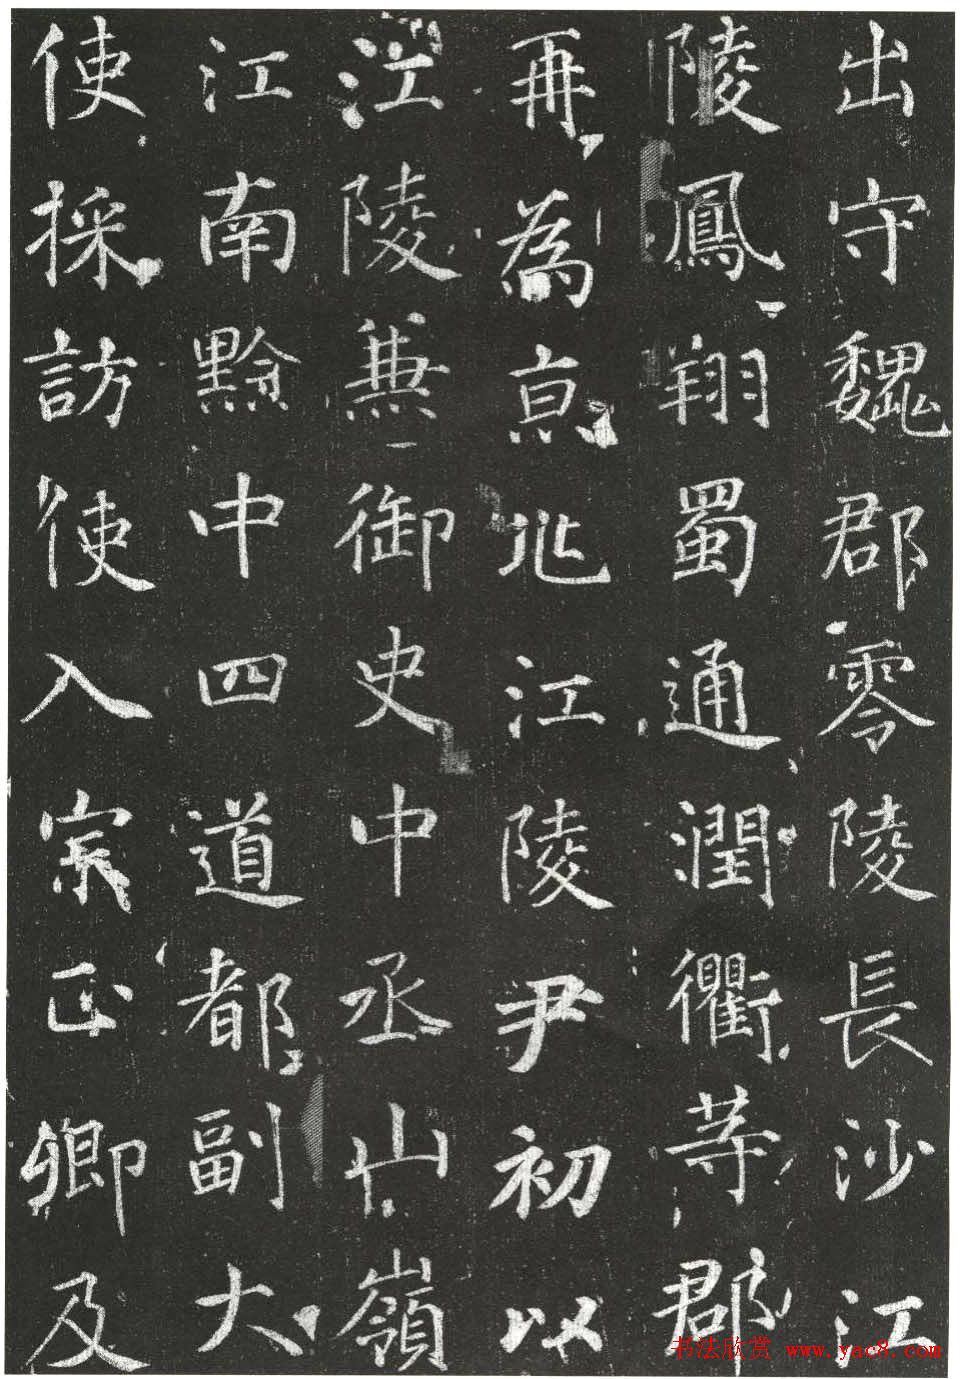 出守魏郡零陵長沙江
陵鳳翔蜀通潤衢䒭郡
再為亰兆江陵尹初以
江陵兼御史中丞山嶺
江南黔中四道都副大
使採訪使入宗正卿及
书法欣赏 www.yac8.com